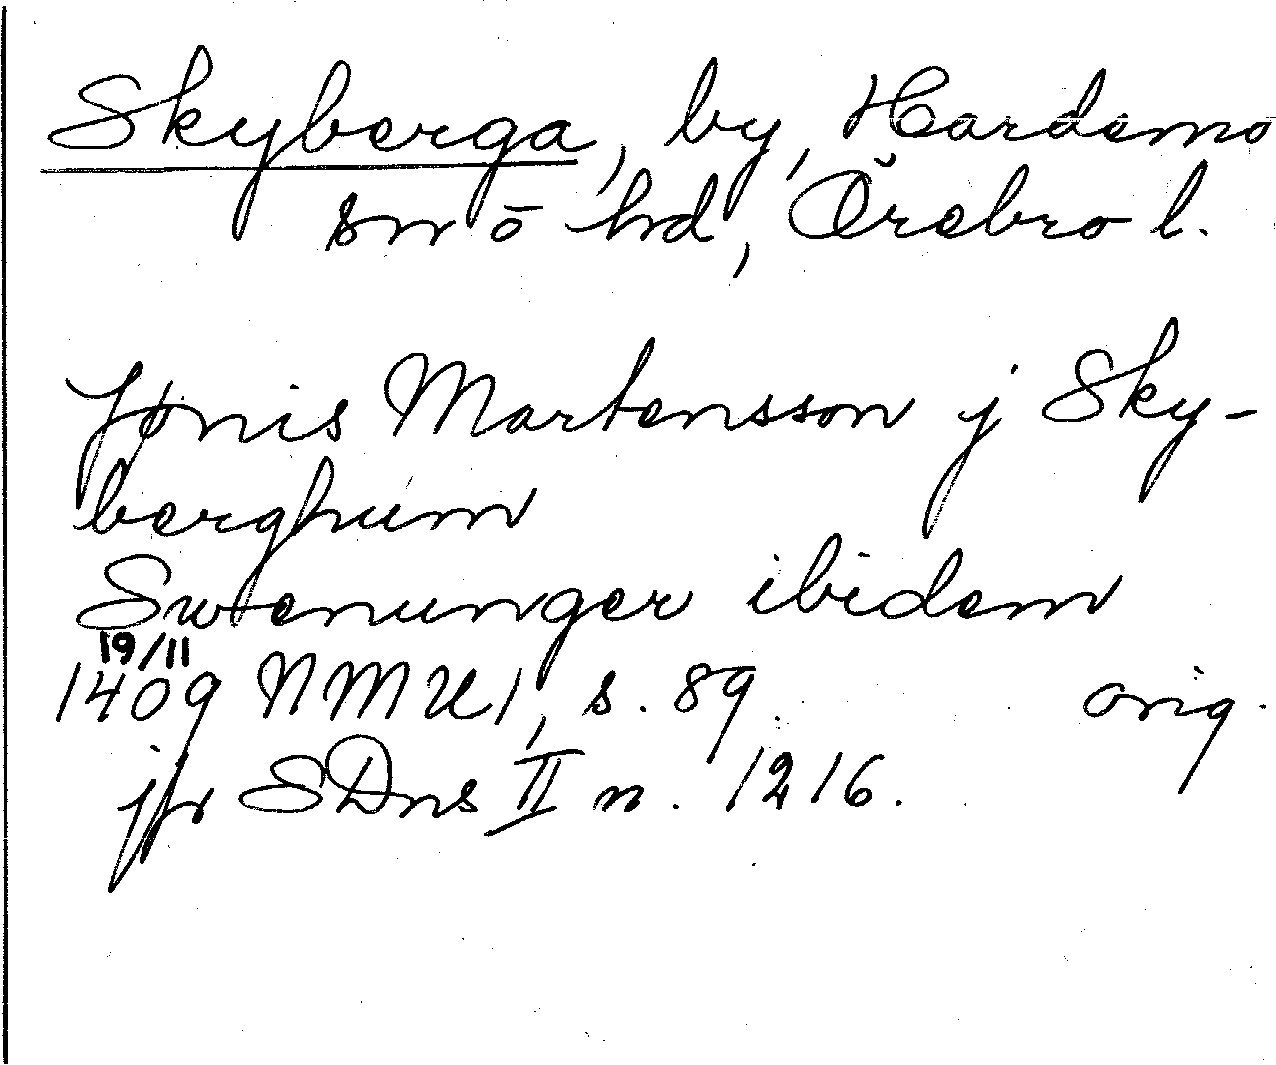 Skyberga, by, Hardemo
sn o hd, Örebro l.
Jønis Martensson j Sky-
berghum
Swenunger ibidem
19/11
1409 NMU1, s. 89. orig.
jfr SDns II n. 1216.